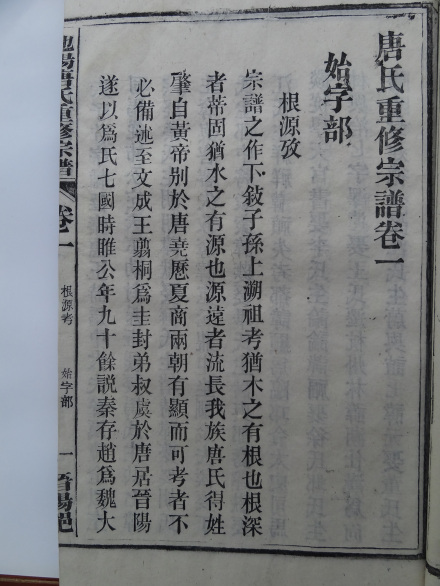 唐氏重修宗譜卷一
始字部
根源攷
宗譜之作下敍子孫上溯祖考猶木之有根也根深
者蒂固猶水之有源也源遠者流長我族唐氏得姓
肇自黃帝别於唐堯歷夏商兩朝有顯而可考者不
必備述至文成王翦桐爲圭封弟叔虞於唐居晉陽
遂以爲氏七國時睢公年九十餘説秦存趙爲魏大
池陽唐氏重修宗譜 卷一 根源考 始字部 一 晉陽